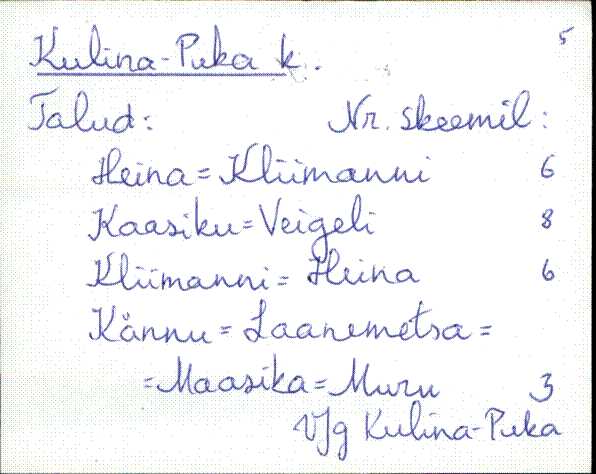 5
Kulina-Puka k.
Talud: Nr. skeemil:
Heina = Kliimanni 6
Kaasiku = Veigeli 8
Kliimanni = Heina 6
Kännu = Laanemetsa =
= Maasika = Muru 3
V/g Kulina-Puka